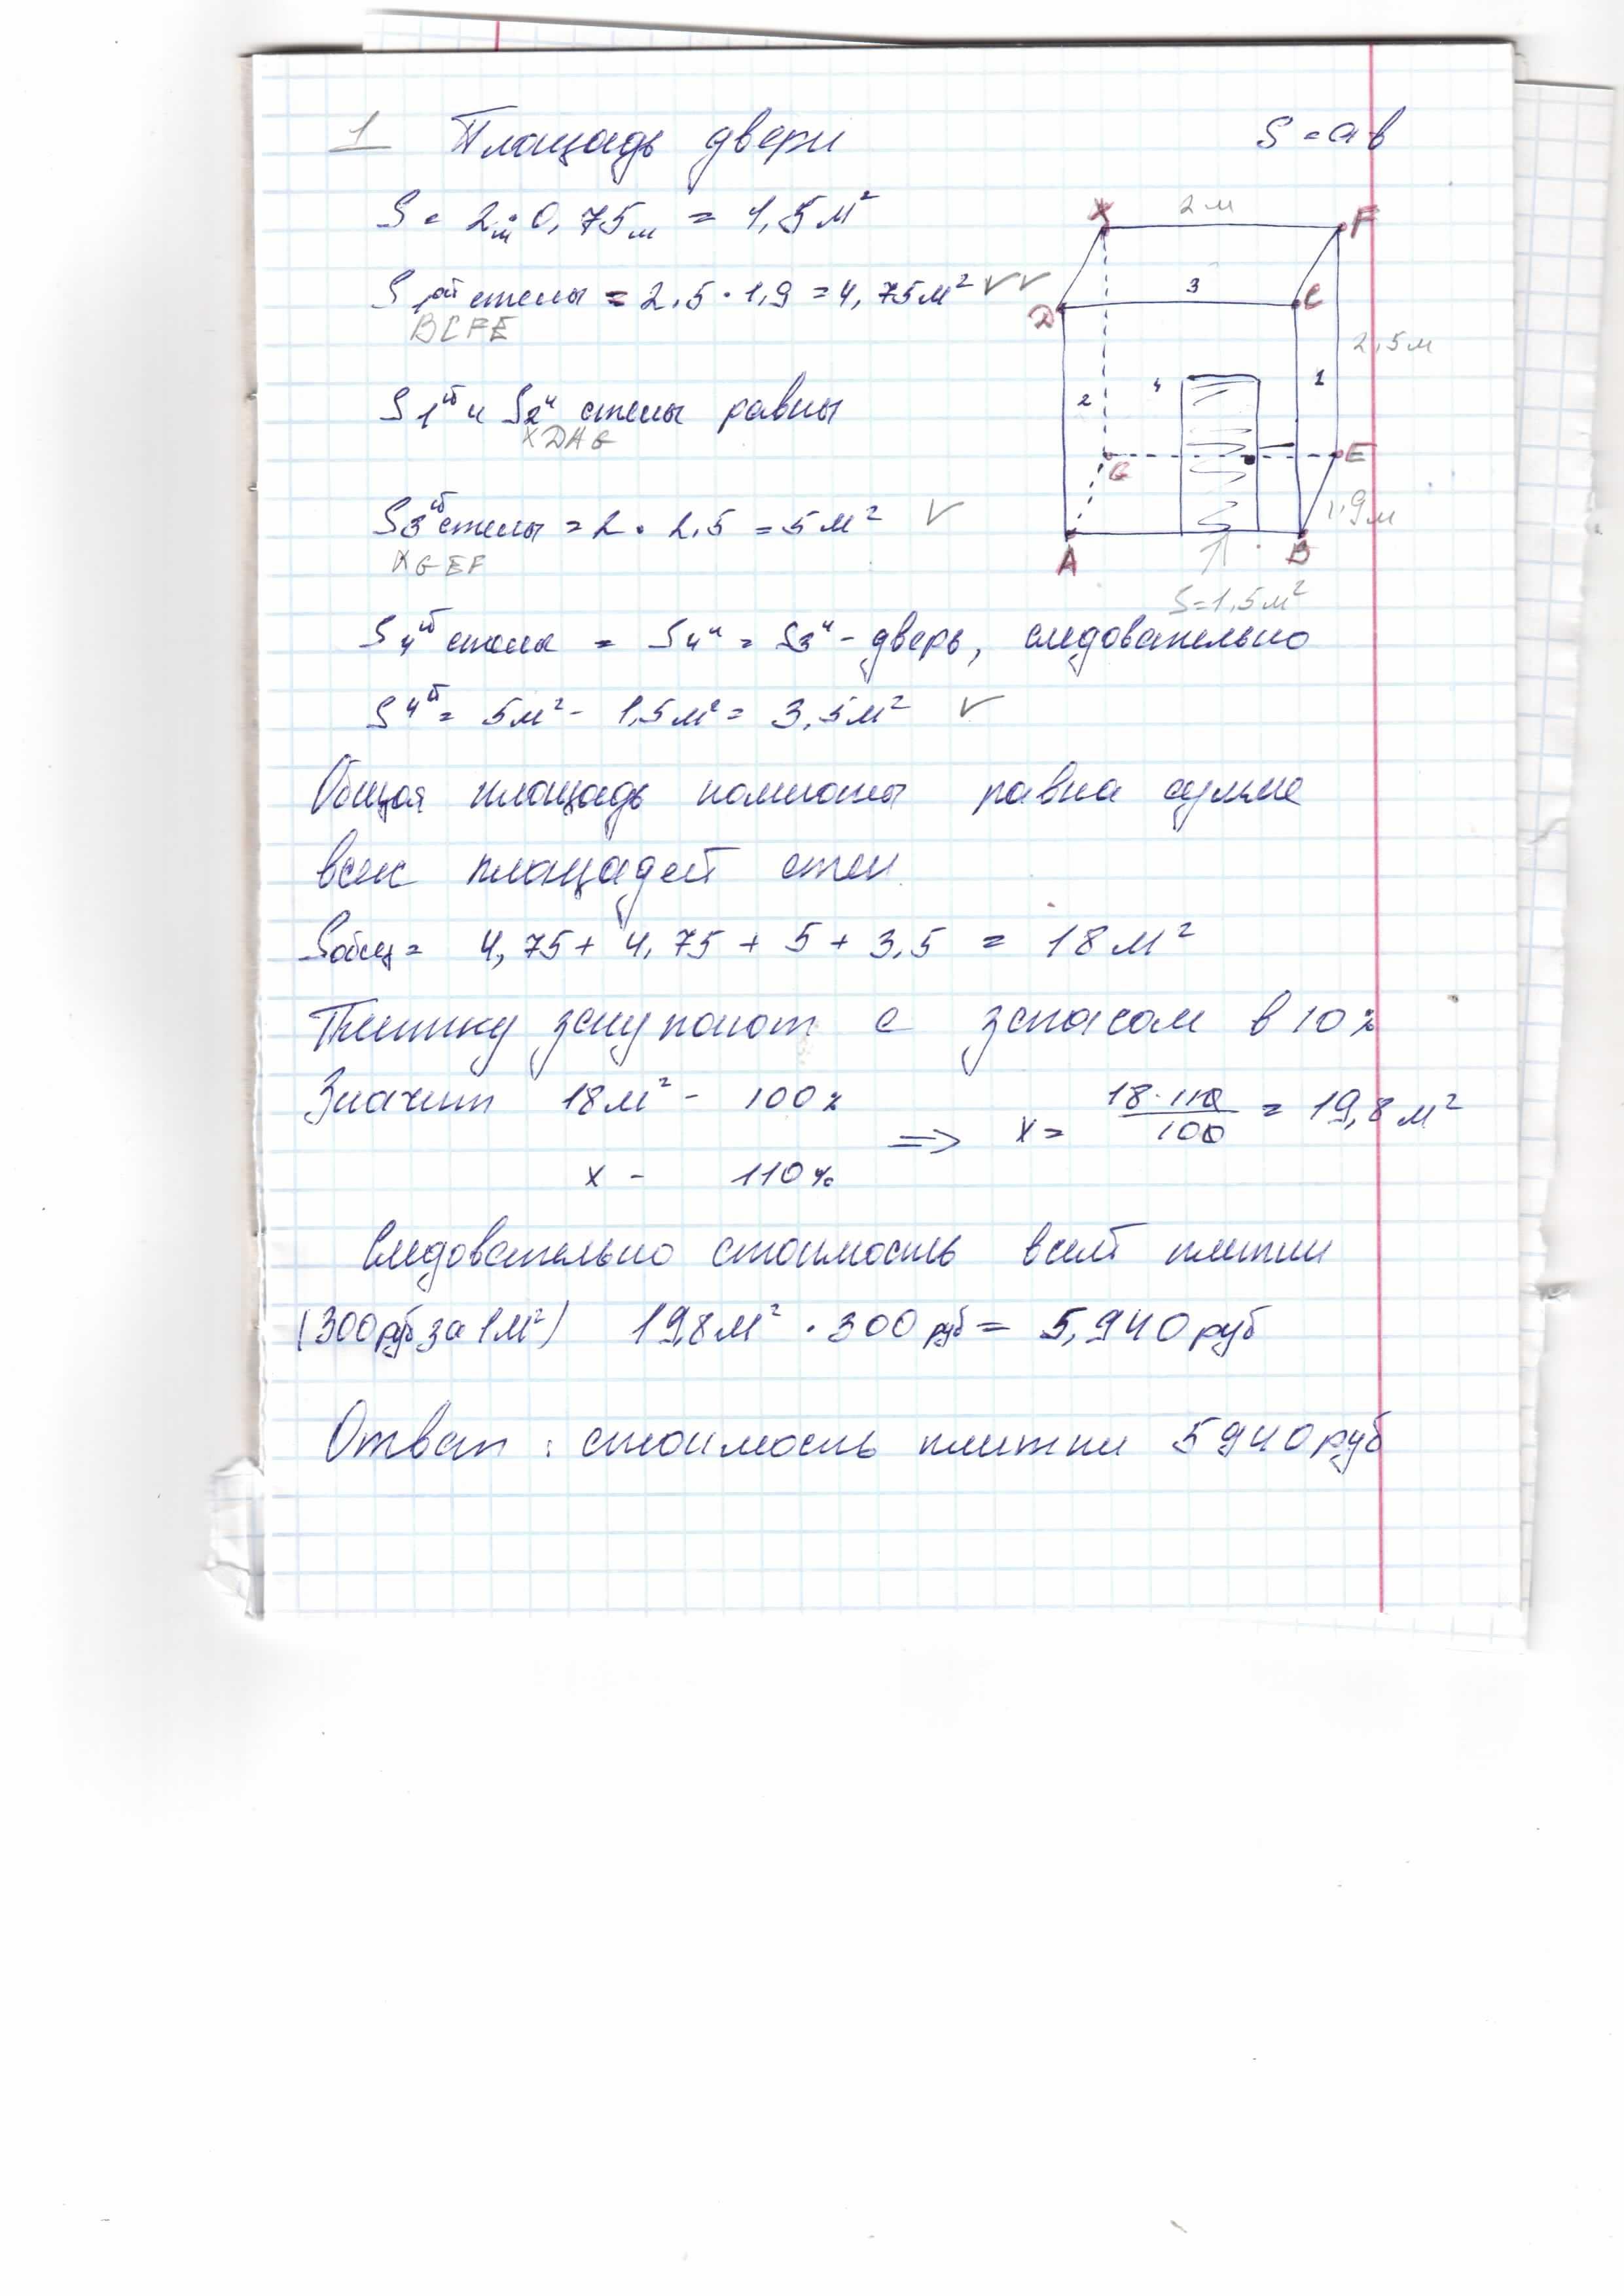 1 Площадь двери S = a b
S = 2м · 0,75м = 1,5 м²
S 1ой стены = 2,5 · 1,9 = 4,75 м² ✓✓
BCFE
S 1й и S2й стены равны
XDAG
S3й стены = 2 · 2,5 = 5 м² ✓
XGEF
S 4й стена = S4й = S3й - дверь, следовательно
S 4й = 5м² - 1,5м² = 3,5м² ✓
Общая площадь комнаты равна сумме
всех площадей стен.
Sобщ = 4,75 + 4,75 + 5 + 3,5 = 18 м²
Плитку закупают с запасом в 10%
Значит 18м² - 100% => x = 18·110/100 = 19,8 м²
x - 110%
Следовательно стоимость всей плитки
(300руб за 1м²) 19,8м² · 300 руб = 5,940 руб
Ответ: стоимость плитки 5940 руб
X 2м F
D 3 C
2,5м
2 4 1
G E
1,9м
A B
S=1,5м²